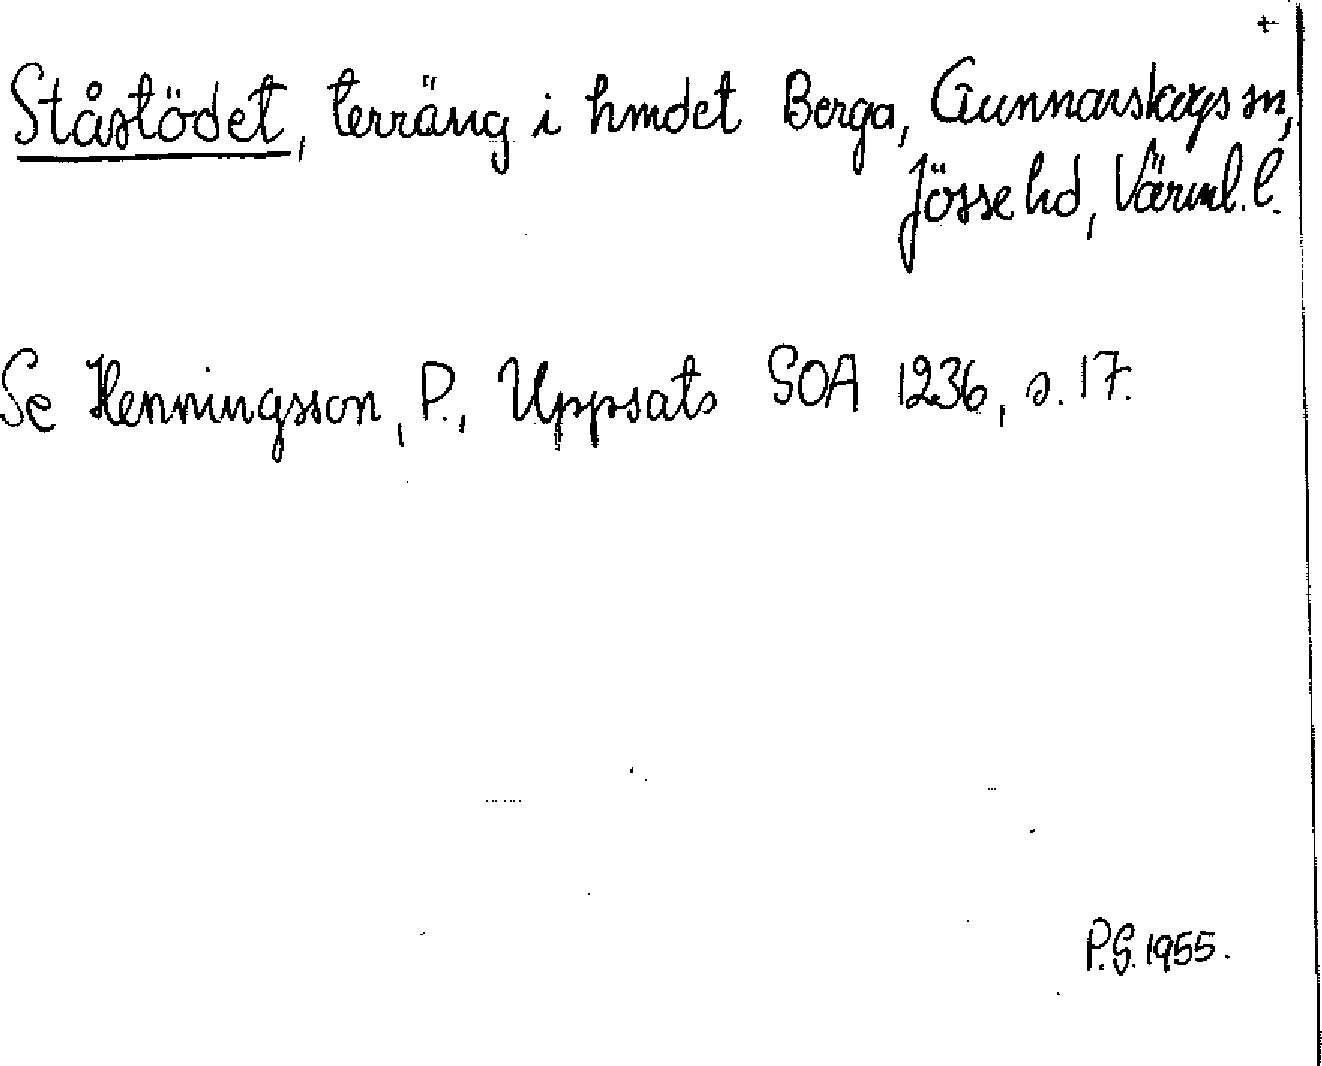 +
Ståstödet, terräng i hmdet Berga, Gunnarskogs sn,
Jösse hd, Värml. l.
Se Henningsson, P., Uppsats SOA 1236, s. 17.
P.G. 1955.